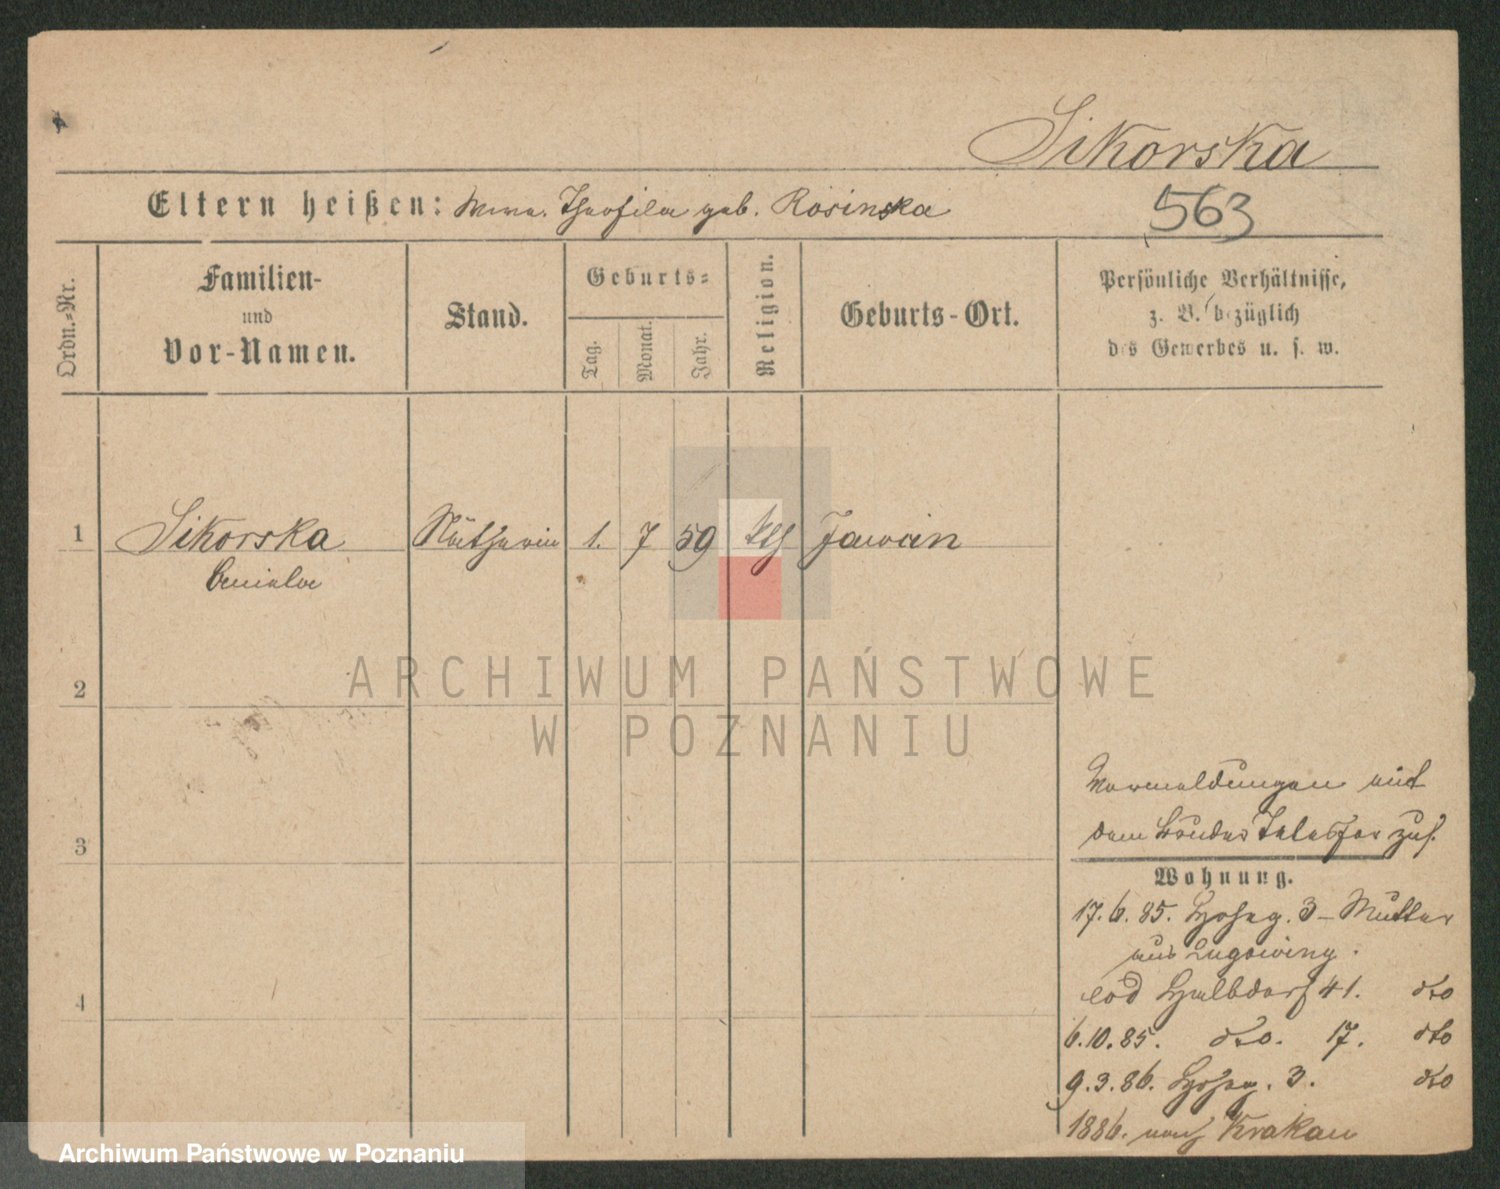 Sikorska
Eltern heißen: Wwe. Theofila geb. Rosinska
563
Ordn.-Nr.
Familien-
und
Vor-Namen.
Stand.
Geburts-
Tag.
Monat.
Jahr.
Religion.
Geburts-Ort.
Persönliche Verhältnisse,
z. B. bezüglich
des Gewerbes u. s. w.
1 Sikorska Nätherin 1. 7 59 kth
2
3
4
ARCHIWUM PAŃSTWOWE
W POZNANIU
Vermeldungen mit
dem Bruder Telesfor zus.
Wohnung.
17.6.85. 3 - Mutter
aus
eod Halbdorf 41. dto
6.10.85. dto. 17. dto
9.3.86. 3. dto
1886. nach Krakau
Archiwum Państwowe w Poznaniu